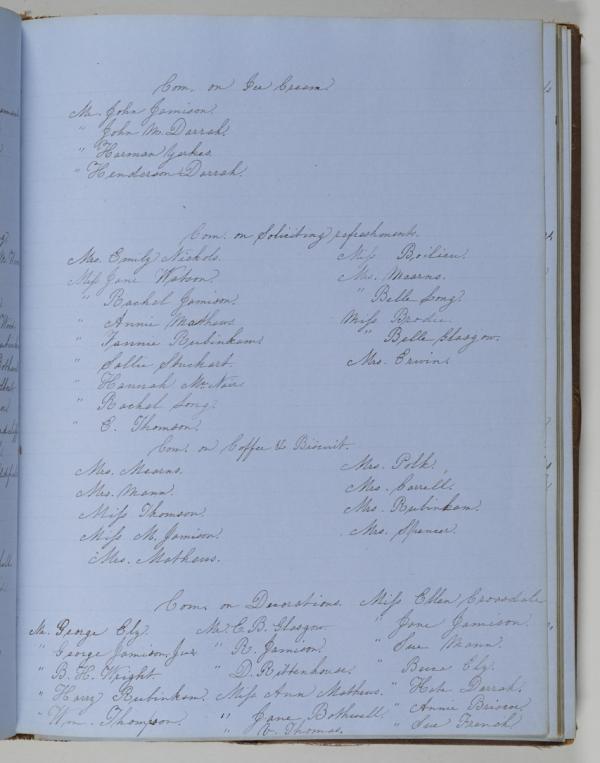 Com. on Ice Cream.
Mr. John Jamison.
" John M. Darrah.
" Harman Yerkes.
" Henderson Darrah.
Com. on Soliciting refreshments.
Mrs. Emily Nichols.
Miss Jane Watson.
" Rachel Jamison.
" Annie Mathews.
" Fannie Rubinkam.
" Sallie Stuckart.
" Hannah Mc Nair.
" Rachel Long.
" E. Thomson.
Miss Boilieu.
Mrs. Mearns.
" Belle Long.
Miss Brodie.
" Belle Glasgow.
Mrs. Erwin.
Com. on Coffee & Biscuit.
Mrs. Mearns.
Mrs. Mann.
Miss Thomson.
Miss M. Jamison.
Mrs. Mathews.
Mrs. Polk.
Mrs. Carrell.
Mrs. Rubinkam.
Mrs. Spencer.
Com. on Decorations.
Mr. George Ely.
" George Jamison, Jur
" B. H. Wright.
" Harry Rubinkam.
" Wm. Thompson.
Mr. E. B. Glasgow.
" R. Jamison.
" D. Rittenhouse.
Miss Ann Mathews.
" Jane Bothwell.
" E. Thomas.
Miss Ellen Croasdale
" Jane Jamison.
" Sue Mann.
" Ely.
" Darrah.
" Annie Briscoe.
" Sue French.